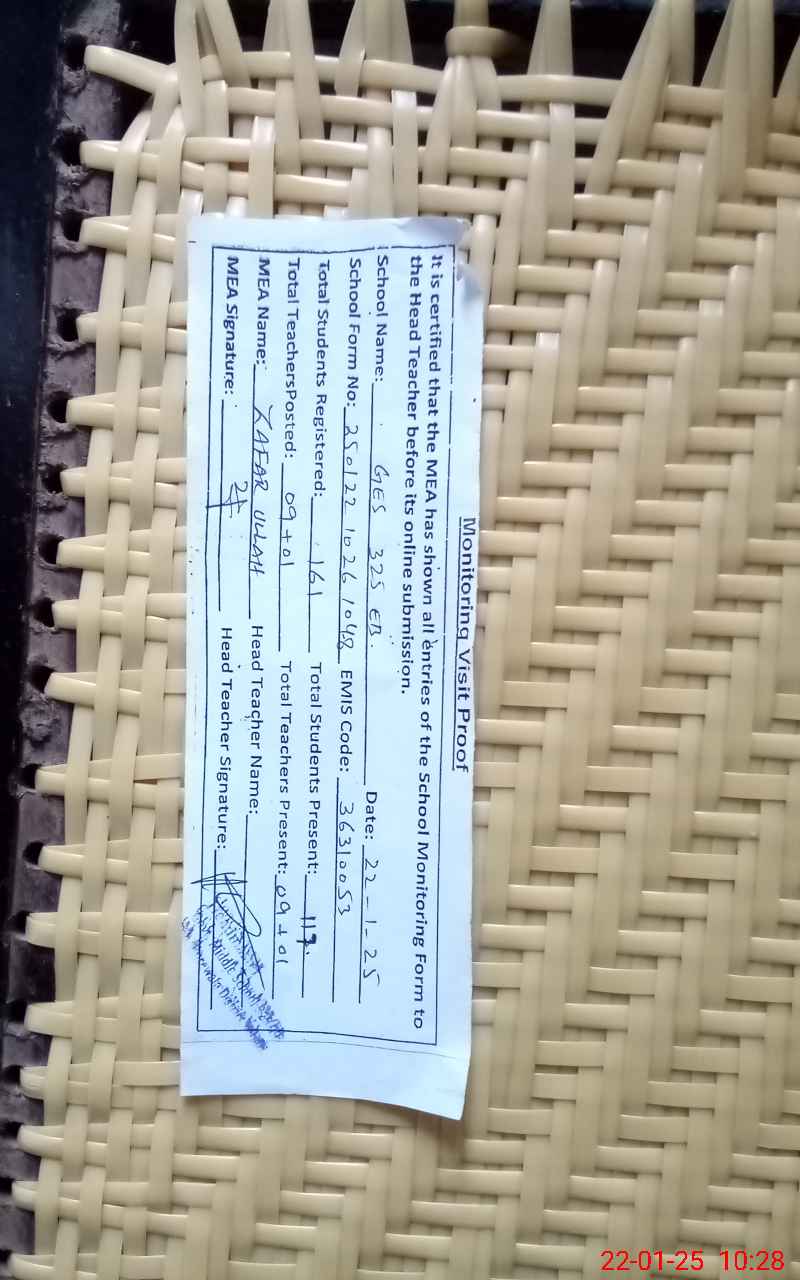 Monitoring Visit Proof
It is certified that the MEA has shown all entries of the School Monitoring Form to
the Head Teacher before its online submission.
School Name: GES 325 EB. Date: 22-1-25
School Form No: 250122 1026 1048 EMIS Code: 36310053
Total Students Registered: 161 Total Students Present: 117.
Total TeachersPosted: 09+01 Total Teachers Present: 09+01
MEA Name: ZAFAR ULLAH Head Teacher Name:
MEA Signature: Head Teacher Signature:
Middle School
District
22-01-25 10:28